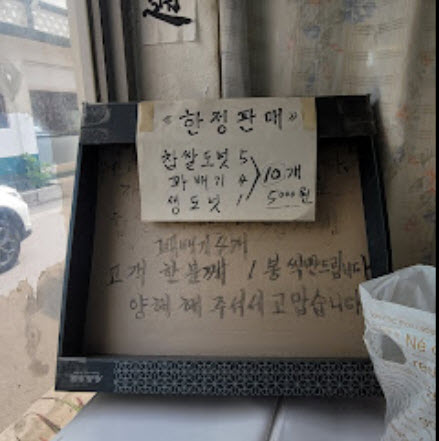 通
<한정판매>
찹쌀도넛 5
꽈배기 4
생도넛 1
10개
5000원
꽈배기 두개
고객 한분께 1봉씩만드립니다
양해해주세요 고맙습니다